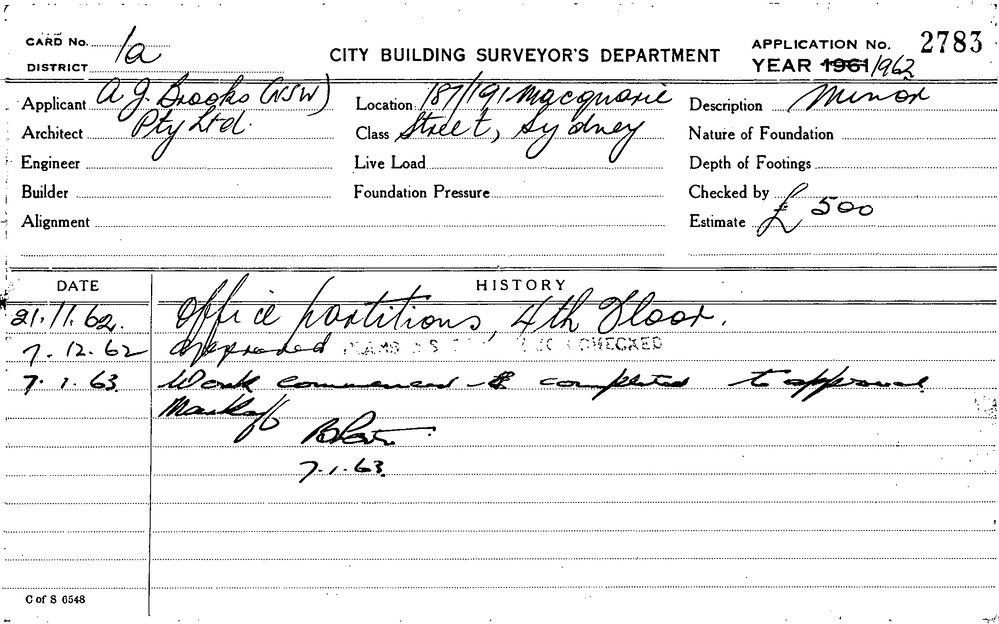 CARD No. 1a
CITY BUILDING SURVEYOR'S DEPARTMENT
APPLICATION No. 2783
DISTRICT
YEAR 1961/1962
Applicant A J. Brooks (NSW)
Location 187/191 Macquarie
Description Minor
Architect Pty Ltd.
Class Street, Sydney
Nature of Foundation
Engineer
Live Load
Depth of Footings
Builder
Foundation Pressure
Checked by
Alignment
Estimate £ 500
DATE
HISTORY
21.11.62. Office partitions, 4th Floor.
7.12.62 Approved CHECKED
7.1.63. Work commenced & completed to approval
Mark off
7.1.63.
C of S 6548